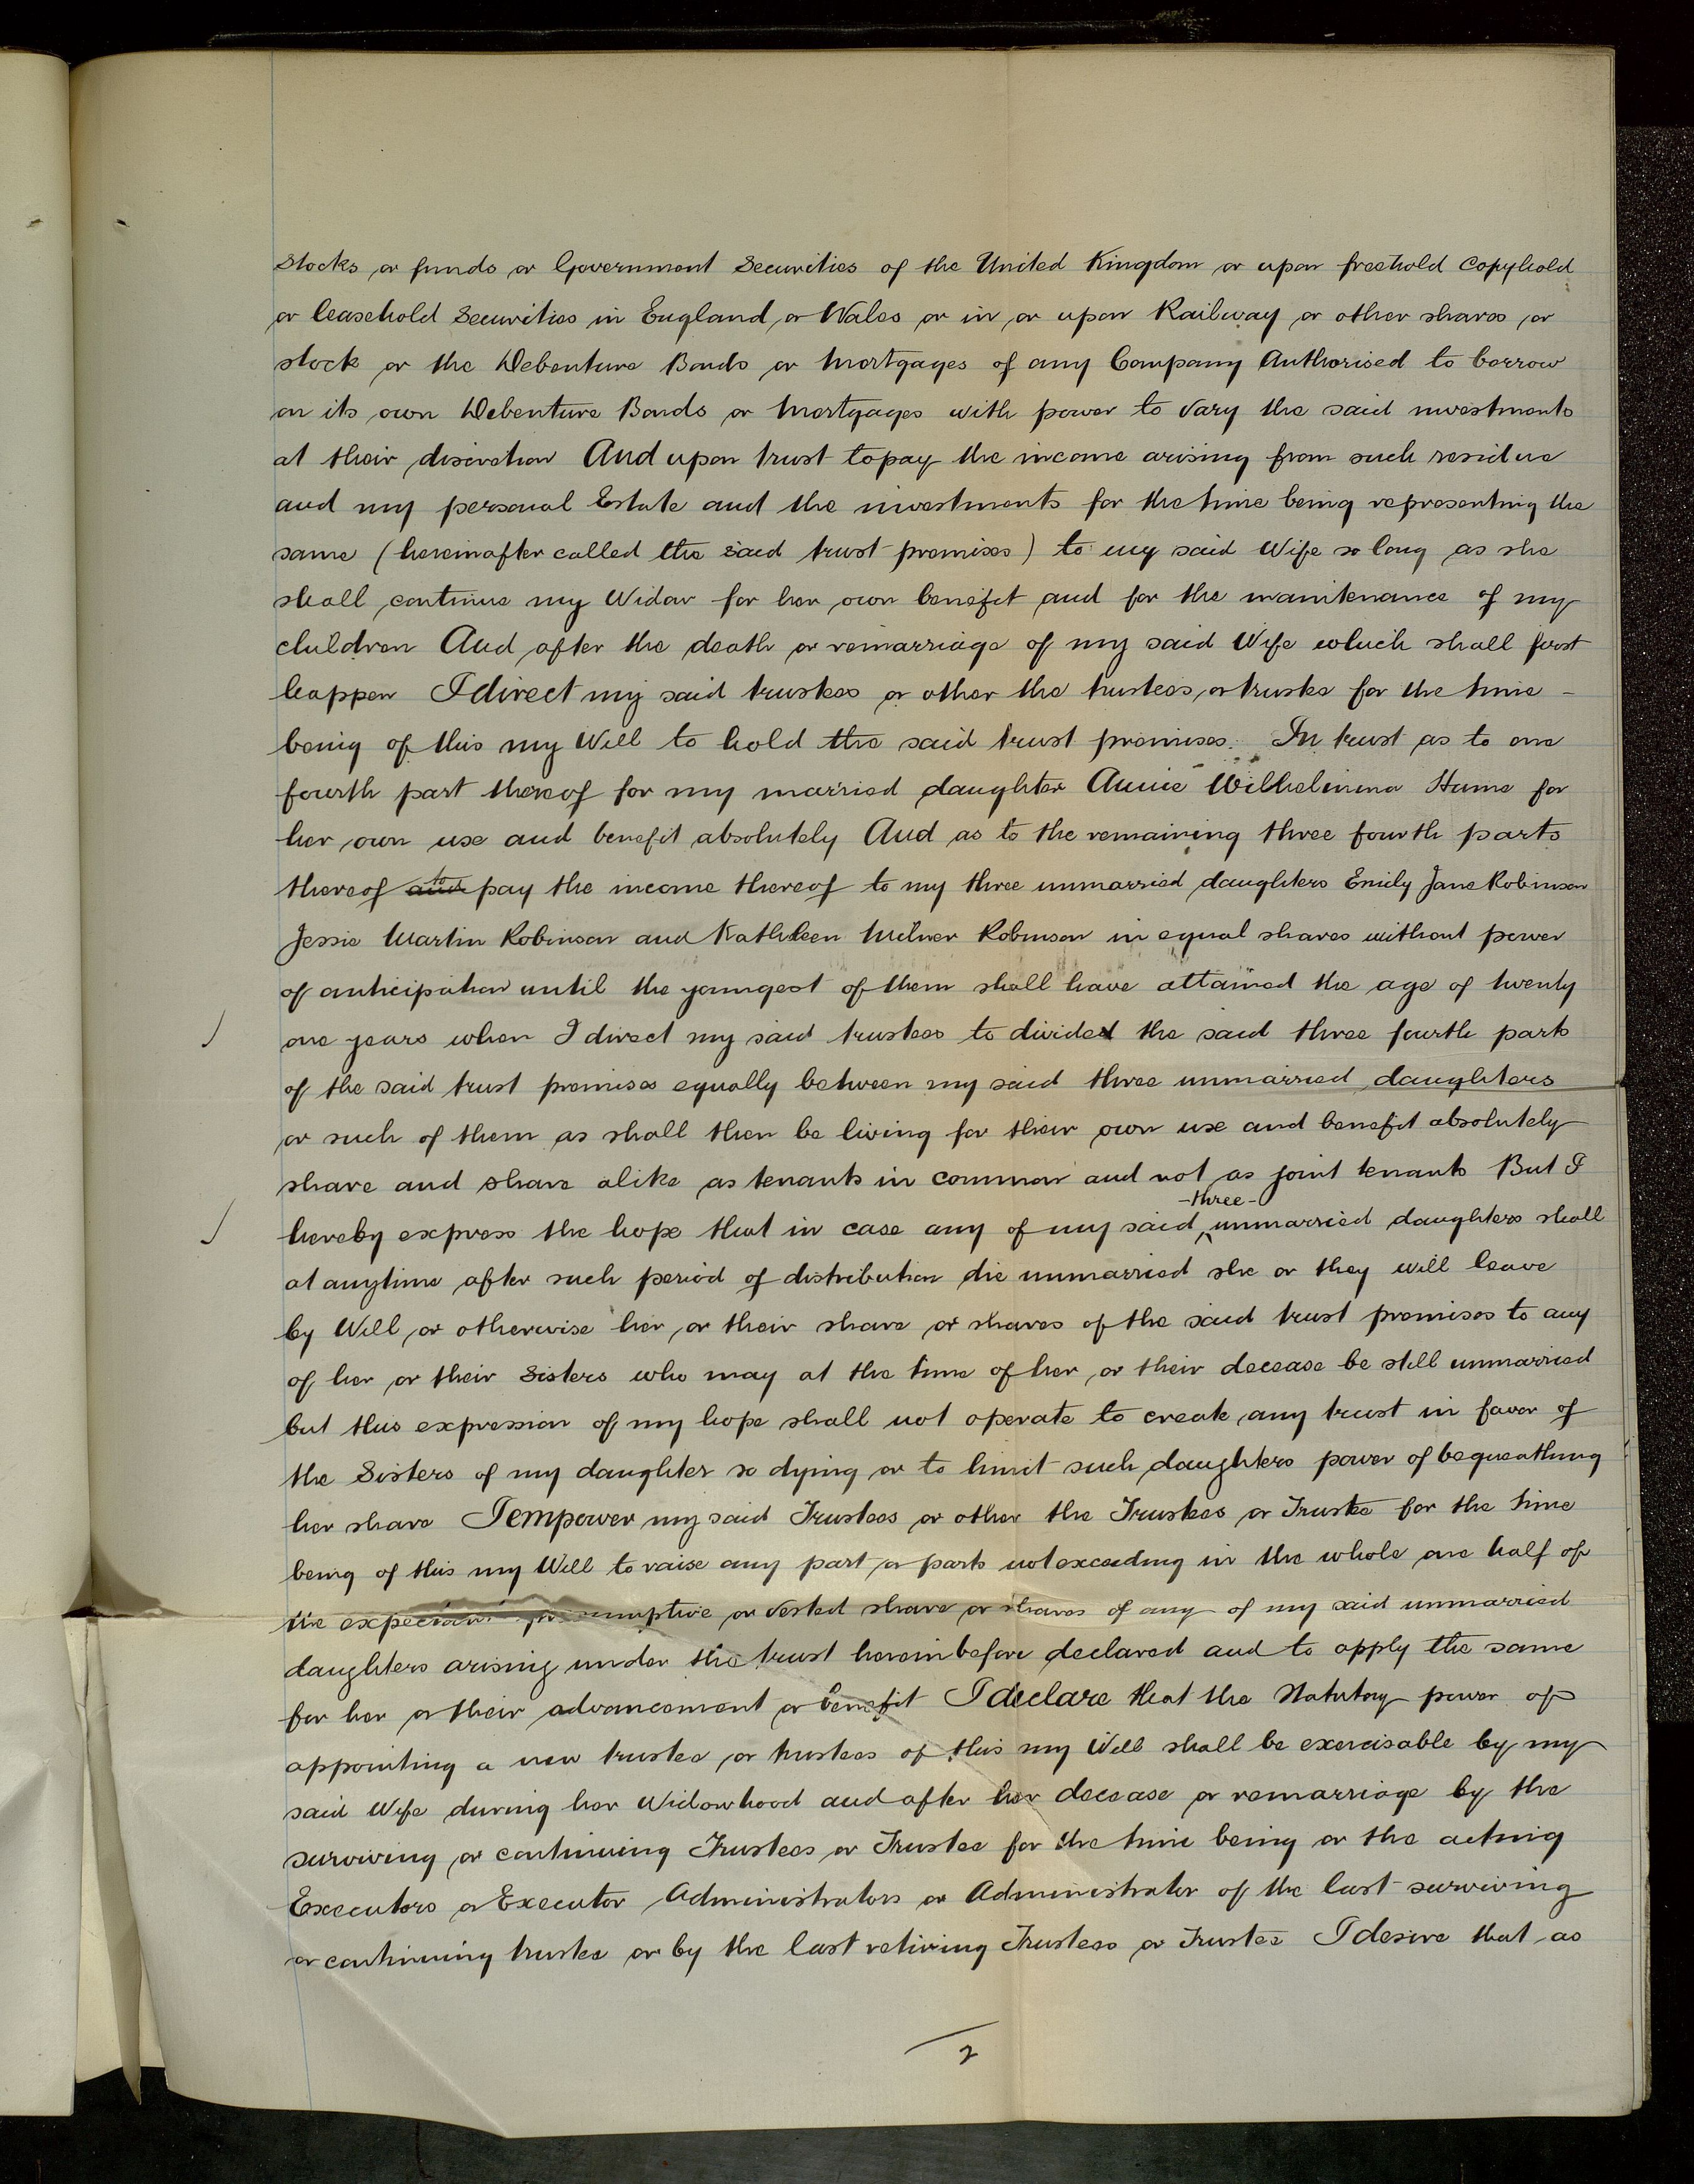 Stocks or funds or Government Securities of the United Kingdom or upon freehold copyhold
or leasehold Securities in England or Wales or in or upon Railway or other shares or
stock or the Debenture Bonds or Mortgages of any Company Authorised to borrow
on its own Debenture Bonds or Mortgages with power to vary the said investments
at their discretion And upon trust to pay the income arising from such residue
and my personal Estate and the investments for the time being representing the
same (hereinafter called the said trust premises) to my said Wife so long as she
shall continue my Widow for her own benefit and for the maintenance of my
children And after the death or remarriage of my said Wife which shall first
happen I direct my said trustees or other the trustees or trustee for the time -
being of this my Will to hold the said trust premises. In trust as to one
fourth part thereof for my married daughter Annie Wilhelmina Hume for
her own use and benefit absolutely And as to the remaining three fourth parts
thereof to pay the income thereof to my three unmarried daughters Emily Jane Robinson
Jessie Martin Robinson and Kathleen Milner Robinson in equal shares without power
of anticipation until the youngest of them shall have attained the age of twenty
one years when I direct my said trustees to divide the said three fourth parts
of the said trust premises equally between my said three unmarried daughters
or such of them as shall then be living for their own use and benefit absolutely
share and share alike as tenants in common and not as joint tenants But I
hereby express the hope that in case any of my said -three- unmarried daughters shall
at anytime after such period of distribution die unmarried she or they will leave
by Will or otherwise her or their share or shares of the said trust premises to any
of her or their Sisters who may at the time of her or their decease be still unmarried
but this expression of my hope shall not operate to create any trust in favor of
the Sisters of my daughter so dying or to limit such daughters power of bequeathing
her share I empower my said Trustees or other the Trustees or Trustee for the time
being of this my Will to raise any part or parts not exceeding in the whole one half of
the expectant presumptive or vested share or shares of any of my said unmarried
daughters arising under the trust hereinbefore declared and to apply the same
for her or their advancement or benefit I declare that the Statutory power of
appointing a new trustee or trustees of this my Will shall be exercisable by my
said Wife during her Widowhood and after her decease or remarriage by the
surviving or continuing Trustees or Trustee for the time being or the acting
Executors or Executor Administrators or Administrator of the last surviving
or continuing trustee or by the last retiring Trustees or Trustee I desire that as
2